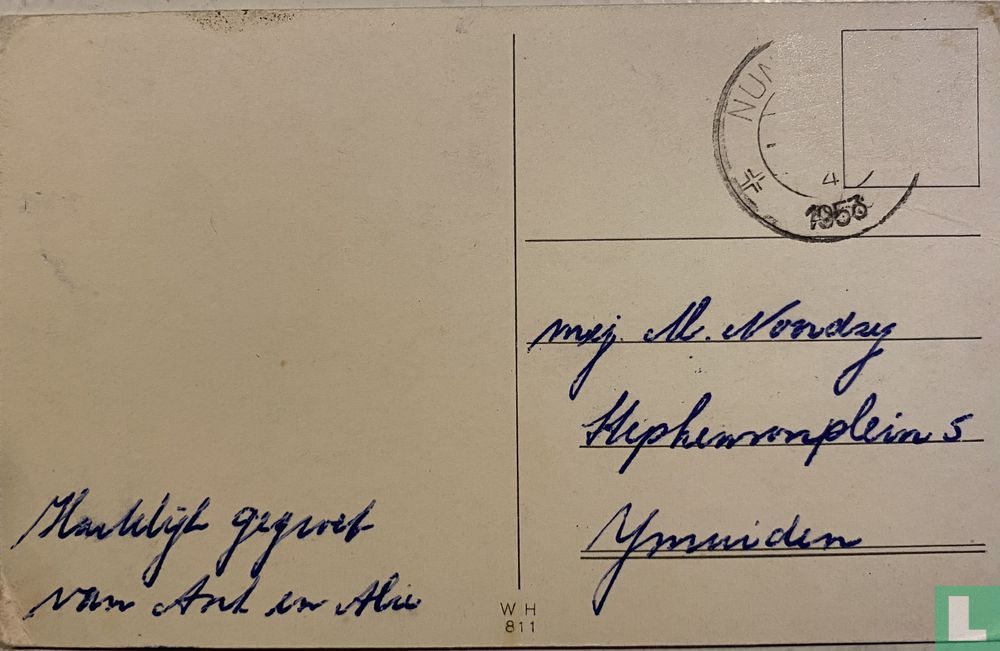 NUM
4
1953
mej. M. Noordzy
Stephensonplein 5
Ymuiden
Hartelijk gegroet
van Ant en Alie
WH
811
L